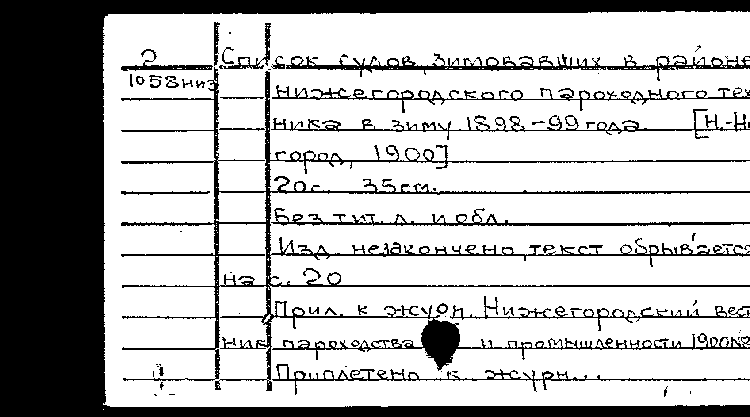 2 Список судов, зимовавших в районе
1058низ нижегородского пароходного тех
ника в зиму 1898-99 года. [Н.-Но
город, 1900]
20с. 35см.
Без тит. л. и обл.
Изд. незакончено, текст обрывается
на с. 20
Прил. к журн. Нижегородский вест
ник пароходства и промышленности 1900
Приплетено к журн...